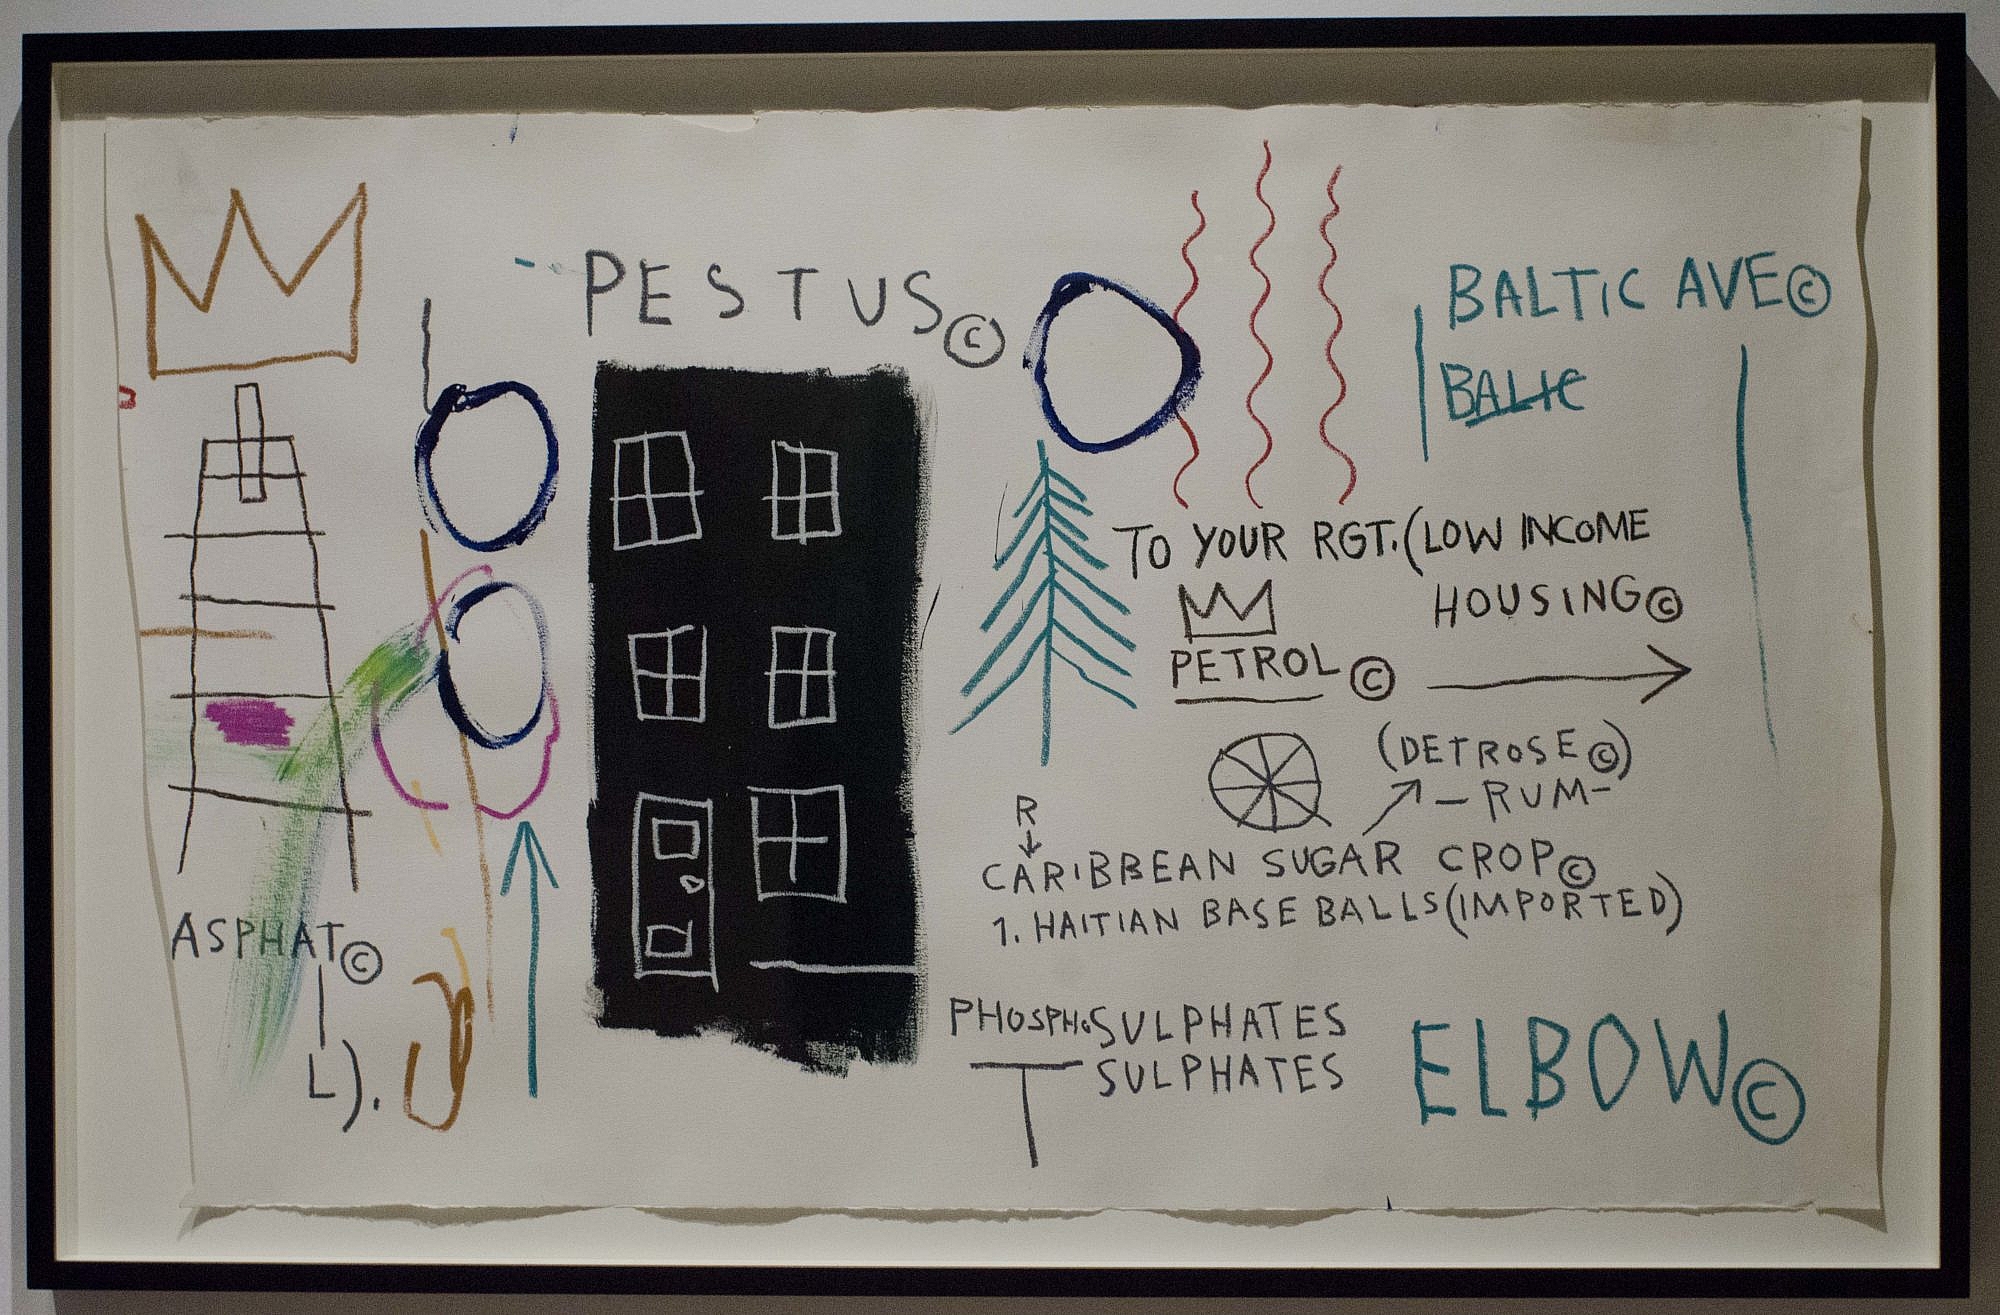 PESTUS©
BALTIC AVE©
BALIC
TO YOUR RGT. (LOW INCOME
HOUSING©
PETROL©
(DETROSE©)
- RUM -
R
CARIBBEAN SUGAR CROP©
1. HAITIAN BASE BALLS (IMPORTED)
ASPHAT©
L).
PHOSPHOSULPHATES
SULPHATES
ELBOW©